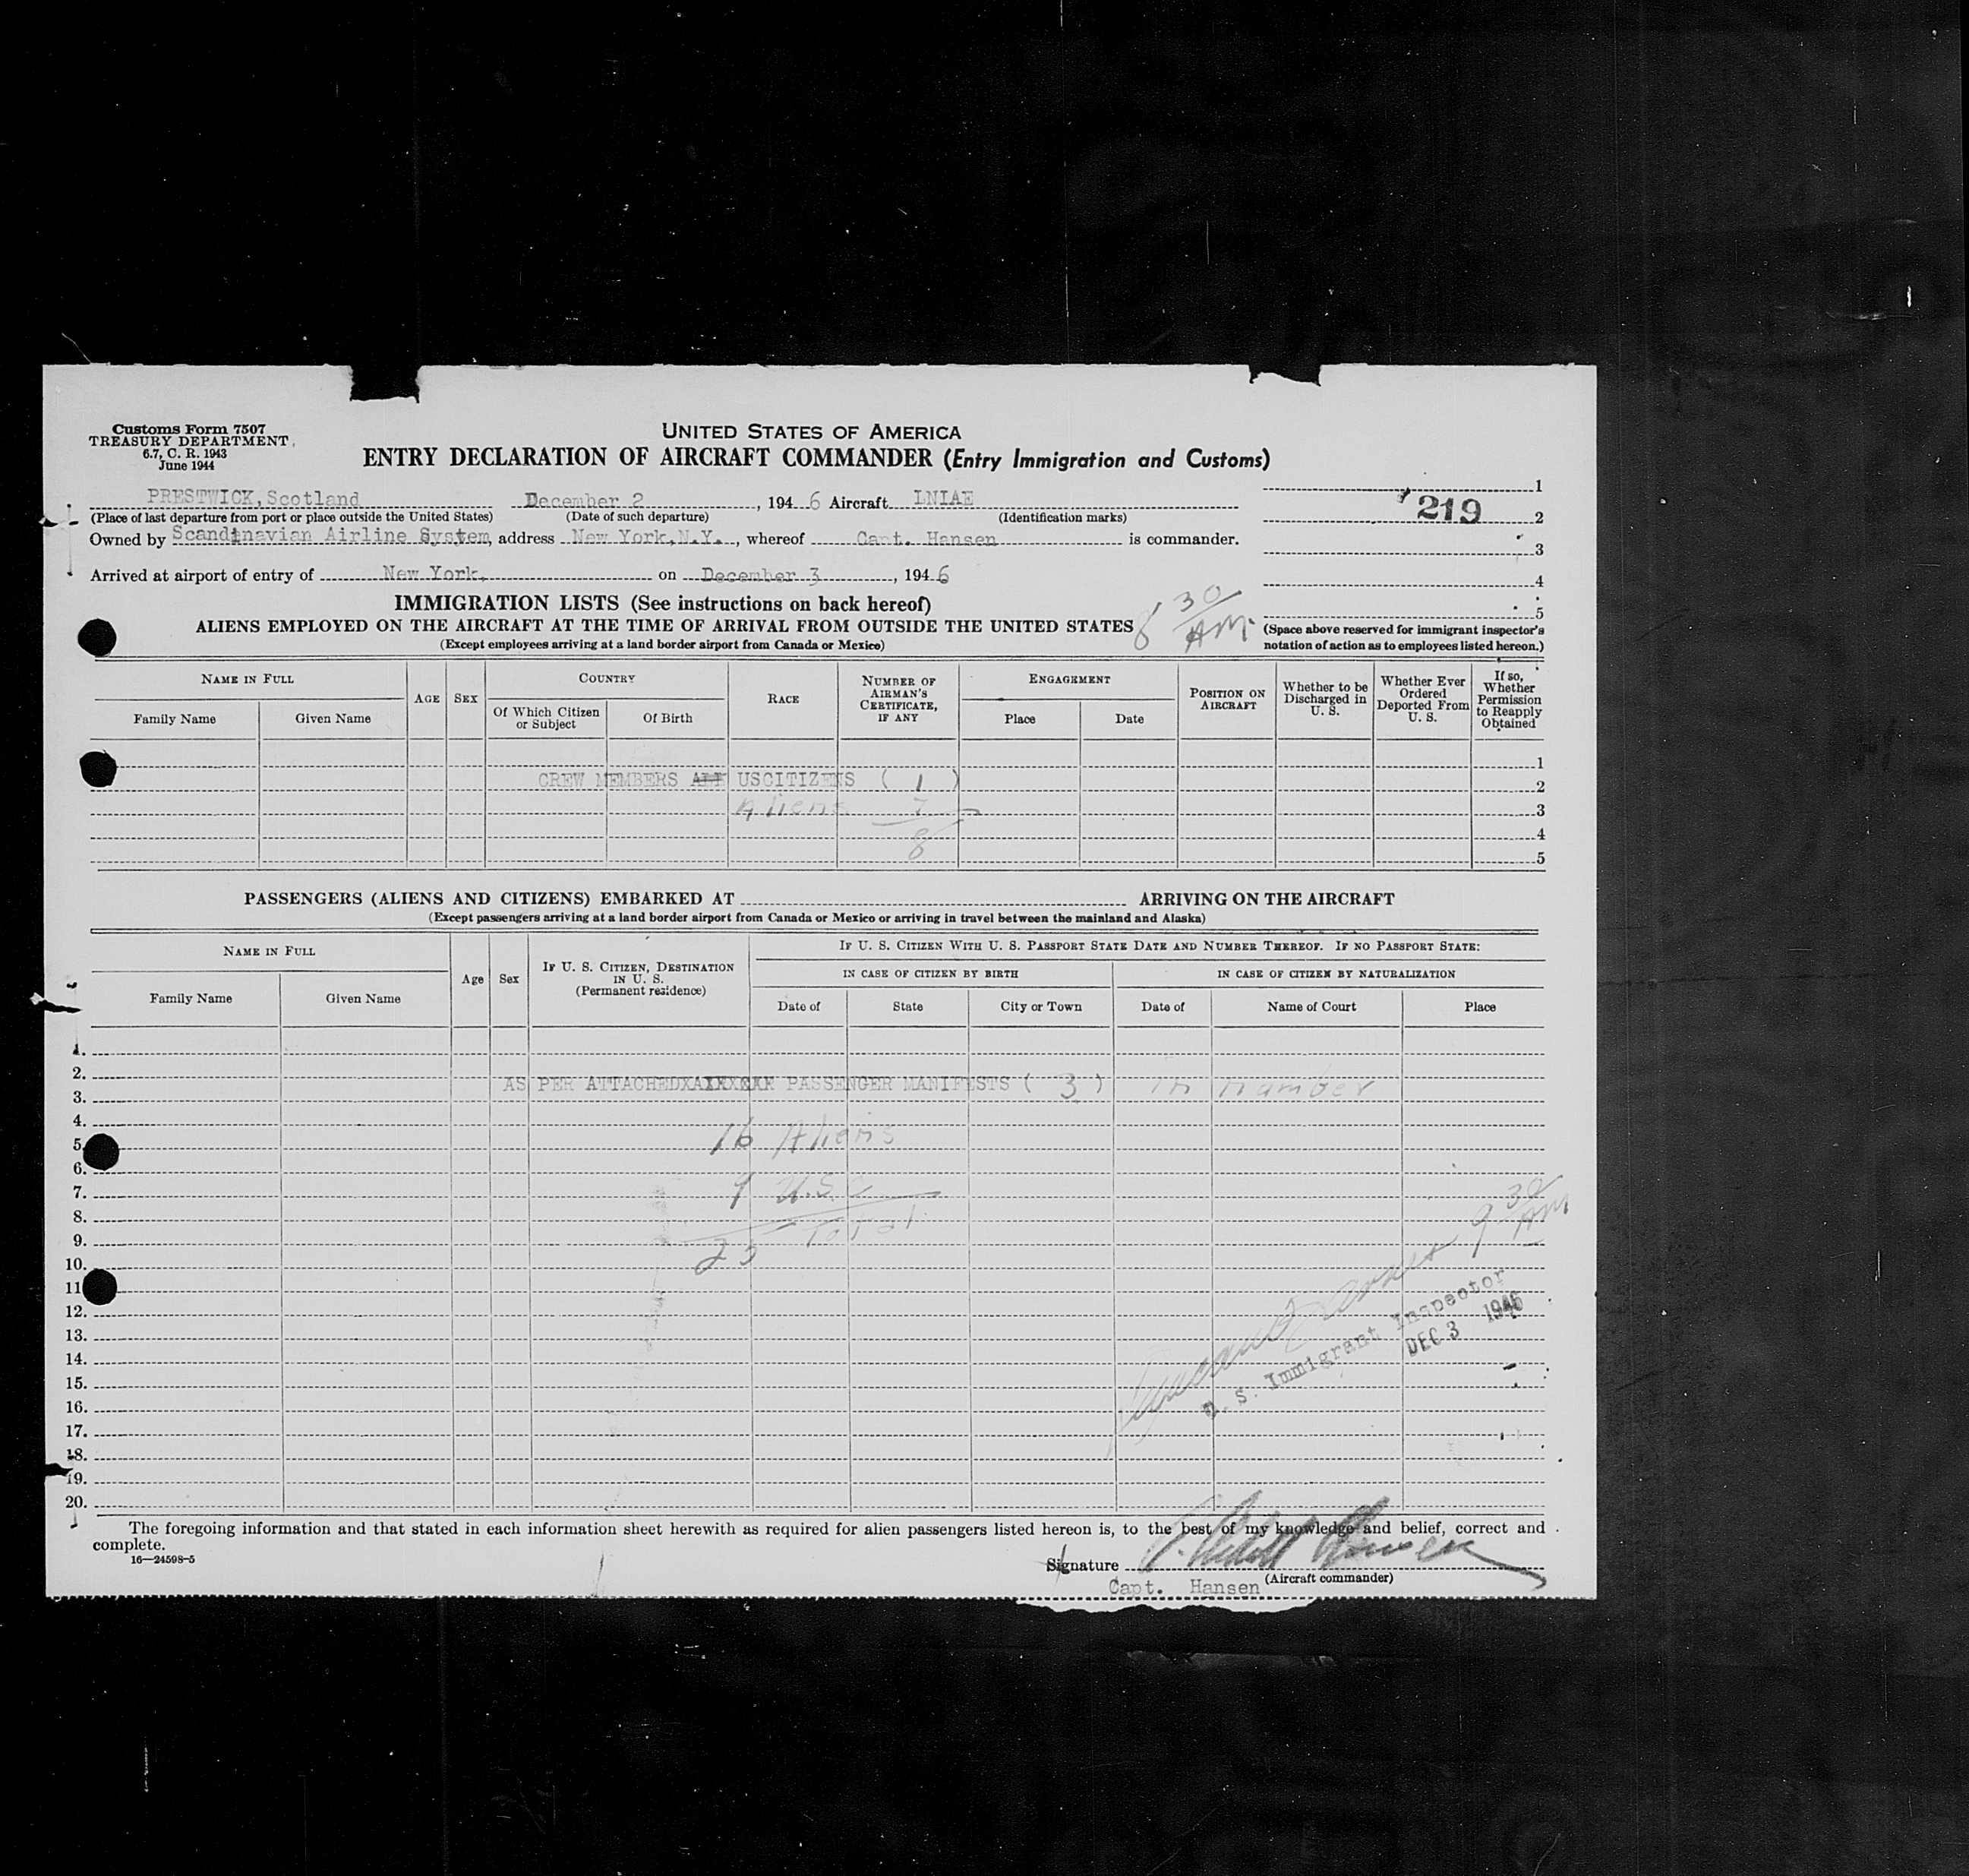 Customs Form 7507
TREASURY DEPARTMENT
6.7, C. R. 1943
June 1944
UNITED STATES OF AMERICA
ENTRY DECLARATION OF AIRCRAFT COMMANDER (Entry Immigration and Customs)
PRESTWICK,Scotland December 2, 1946 Aircraft LNIAE
(Place of last departure from port or place outside the United States) (Date of such departure) (Identification marks)
Owned by Scandinavian Airline System, address New York,N.Y., whereof Capt. Hansen is commander.
Arrived at airport of entry of New York, on December 3, 1946
1
219
2
3
4
5
(Space above reserved for immigrant inspector's notation of action as to employees listed hereon.)
IMMIGRATION LISTS (See instructions on back hereof)
ALIENS EMPLOYED ON THE AIRCRAFT AT THE TIME OF ARRIVAL FROM OUTSIDE THE UNITED STATES
8 30 AM.
(Except employees arriving at a land border airport from Canada or Mexico)
NAME IN FULL
Family Name Given Name
AGE SEX
COUNTRY
Of Which Citizen or Subject Of Birth
RACE
NUMBER OF AIRMAN'S CERTIFICATE, IF ANY
ENGAGEMENT
Place Date
POSITION ON AIRCRAFT
Whether to be Discharged in U. S.
Whether Ever Ordered Deported From U. S.
If so, Whether Permission to Reapply Obtained
1
CREW MEMBERS ALL USCITIZENS ( 1 )
2
Aliens 7
3
8
4
5
PASSENGERS (ALIENS AND CITIZENS) EMBARKED AT ARRIVING ON THE AIRCRAFT
(Except passengers arriving at a land border airport from Canada or Mexico or arriving in travel between the mainland and Alaska)
NAME IN FULL
Family Name Given Name
Age Sex
IF U. S. CITIZEN, DESTINATION IN U. S.
(Permanent residence)
IF U. S. CITIZEN WITH U. S. PASSPORT STATE DATE AND NUMBER THEREOF. IF NO PASSPORT STATE:
IN CASE OF CITIZEN BY BIRTH IN CASE OF CITIZEN BY NATURALIZATION
Date of State City or Town Date of Name of Court Place
1.
2.
AS PER ATTACHED PASSENGER MANIFESTS ( 3 ) in number
3.
4.
16 Aliens
5.
6.
7. U.S.C
8.
Total
9.
10.
11
12.
13.
14.
15.
16.
17.
18.
19.
20.
9 30 AM
U. S. Immigrant Inspector
DEC 3 1946
The foregoing information and that stated in each information sheet herewith as required for alien passengers listed hereon is, to the best of my knowledge and belief, correct and
complete.
16—24598-5
Signature Hansen
(Aircraft commander)
Capt. Hansen